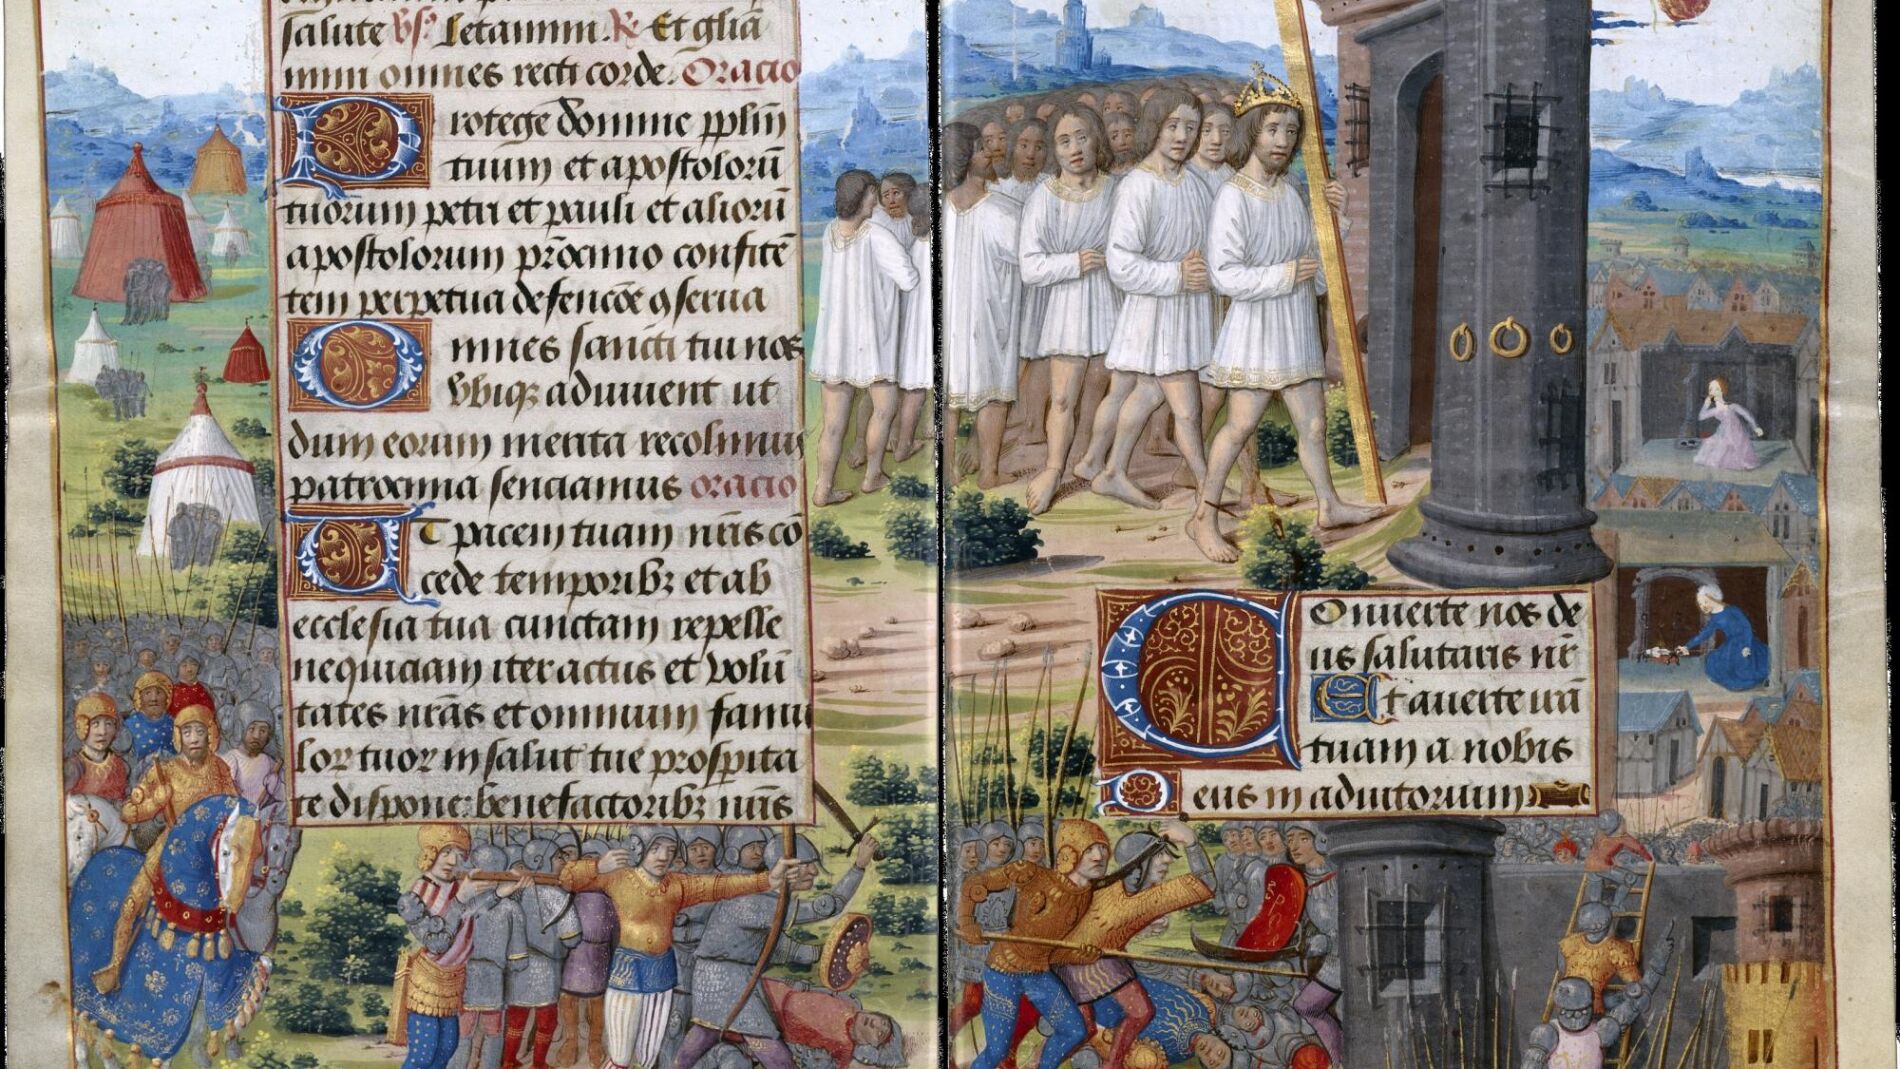 salute v͂s. Letamini. R. Et gliā
mini omnes recti corde. Oracio
Protege domine pplm̄
tuum et apostolorū
tuorum petri et pauli et aliorū
apostolorum prōcinio confitē
tem perpetua defencōe 9serua
Omnes sancti tui nos
vbiqȝ adiuuent ut
dum eorum merita recolimus
patrocinia senciamus oracio
Et pacem tuam nr̄is cō
cede temporibȝ et ab
ecclesia tua cunctam repelle
nequiciam iter actus et volū
tates nr̄as et omnium famu
lor tuor in salut tue prosperita
te dispone: benefactoribȝ nr̄is
Conuerte nos de
us salutaris nr̄
Et auerte irā
tuam a nobis
Deus in adiutorium
SPQ